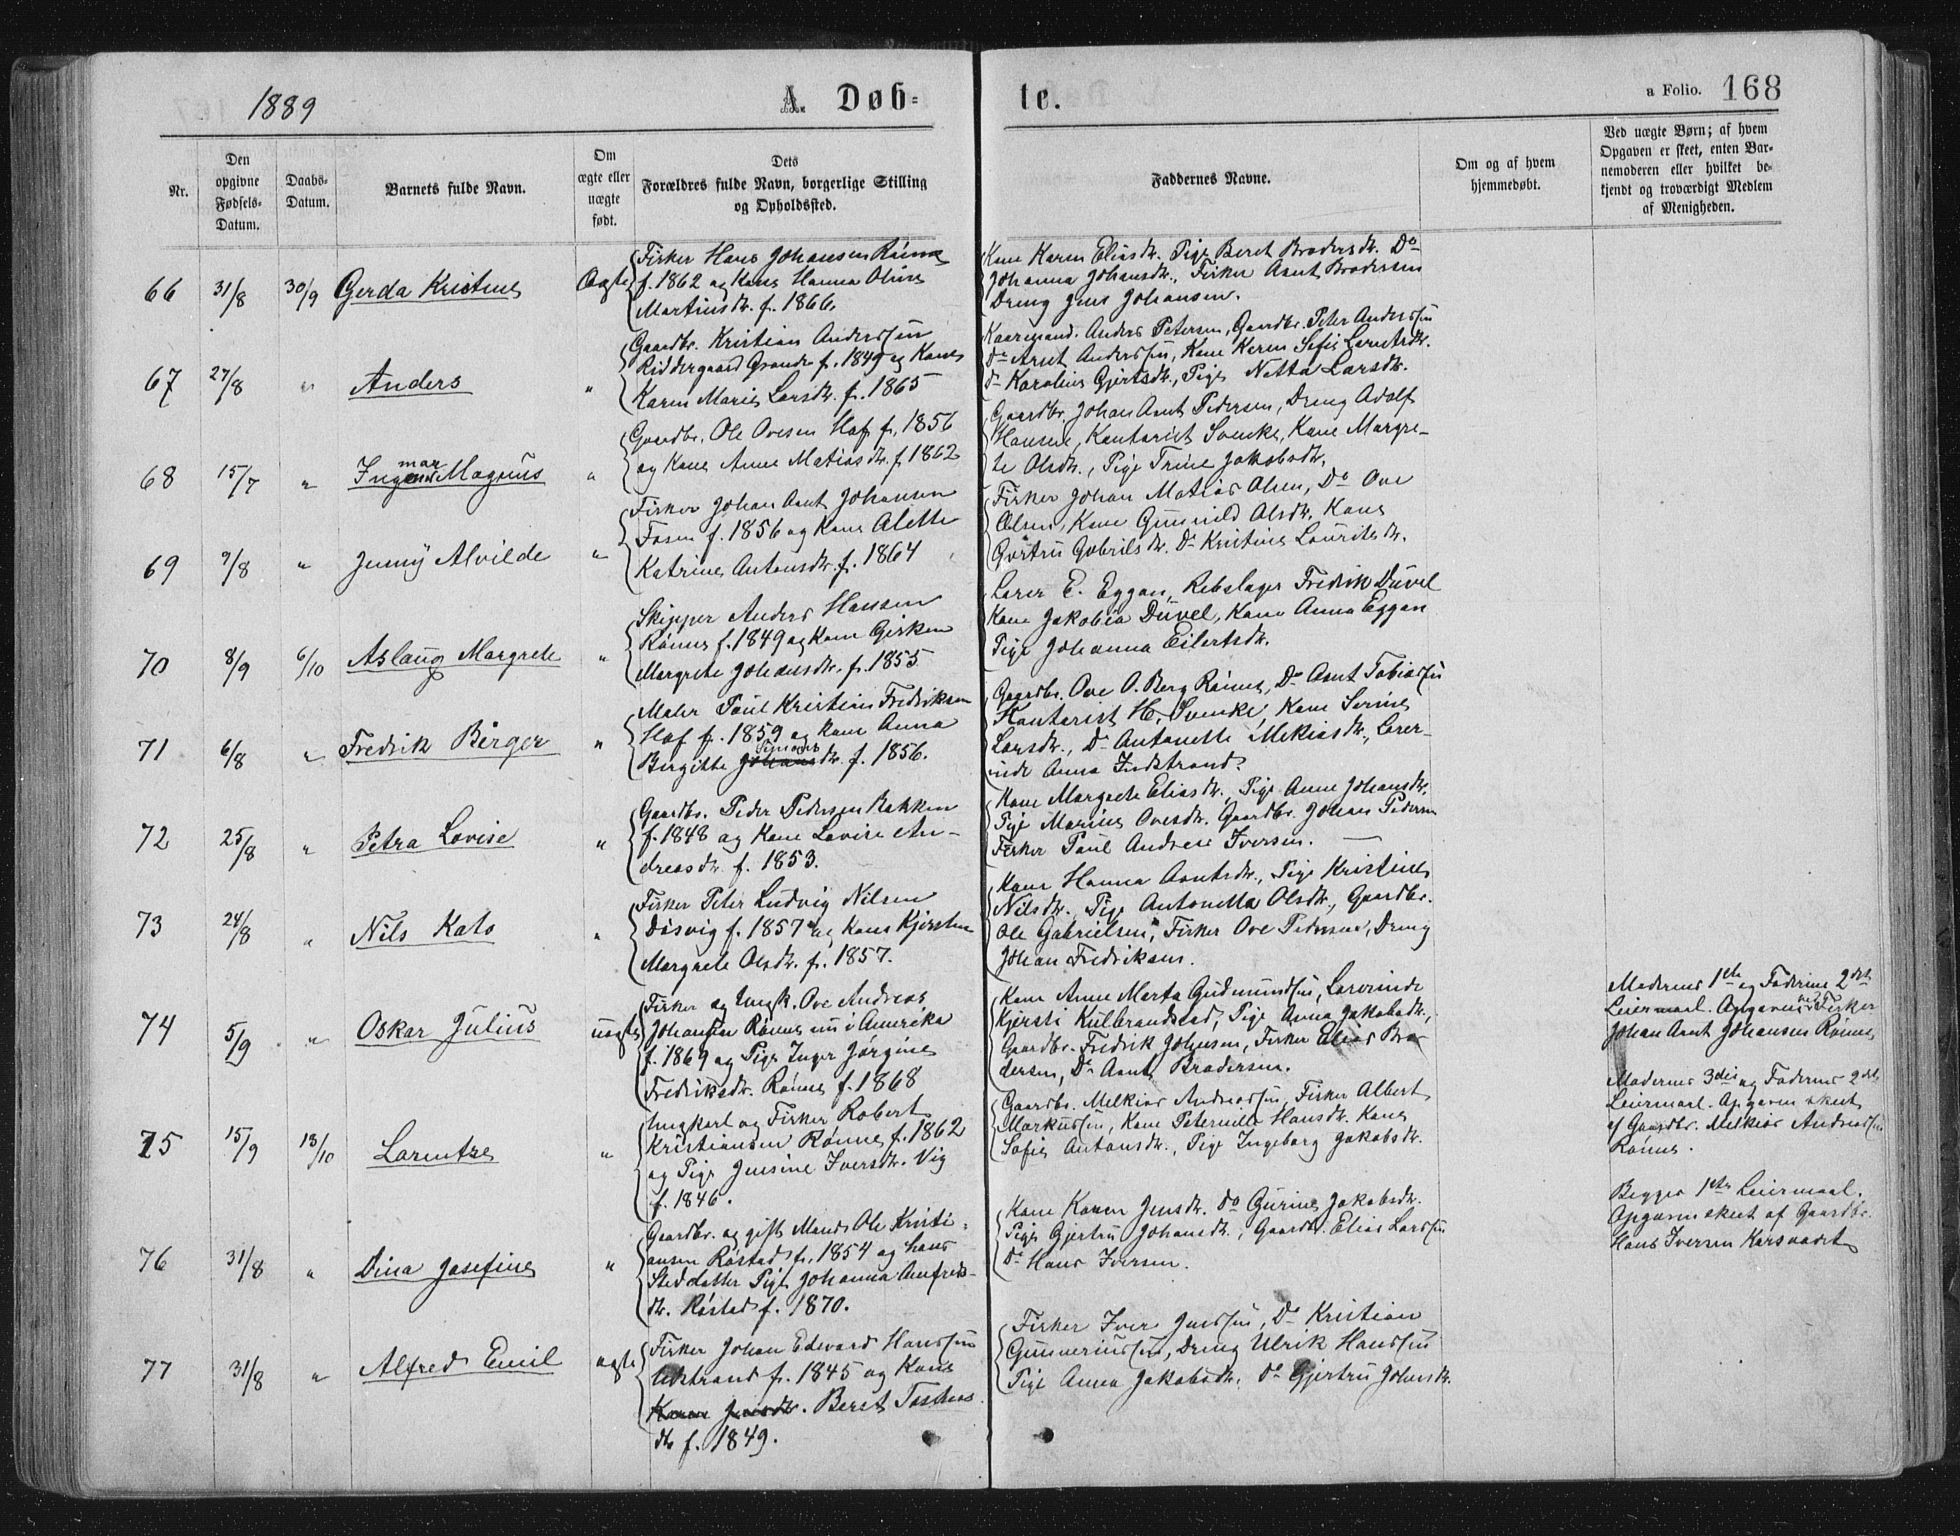 1889
A. Døb=
te.
a Folio. 168
Nr.
Den
opgivne
Fødsels-
Datum.
Daabs-
Datum.
Barnets fulde Navn.
Om
ægte eller
uægte
født.
Dets
Forældres fulde Navn, borgerlige Stilling
og Opholdssted.
Faddernes Navne.
Om og af hvem
hjemmedøbt.
Ved uægte Børn; af hvem
Opgaven er skeet, enten Bar-
nemoderen eller hvilket be-
kjendt og troværdigt Medlem
af Menigheden.
66 31/8 30/9 Gerda Kristine Ægte
Fisker Hans Johansen Rönne
f. 1862 og Kone Hanna Oline
Martinusdr. f. 1866.
Kone Karen Eliasdr. Pige Beret Brodersdr. Do
Johanna Johansdr., Fisker Arnt Brodersen
Dreng Jens Johansen.
67 27/8 " Anders "
Gaardbr. Kristian Anderssen
Riddergaard Grande f. 1849 og Kone
Karen Marie Larsdr. f. 1865
Kaarmand. Anders Petersen, Gaardbr. Peter Anderssen
Do Arnt Anderssen, Kone Karen Sofie Larsdr.
Do Karoline Gjertsdr., Pige Netta Larsdr.
68 15/7 " Ingemar Magnus "
Gaardbr. Ole Ovesen Hof f. 1856
og Kone Anne Matiasdr. f. 1862
Gaardbr. Johan Arnt Pedersen, Dreng Adolf
Hansen, Kontorist Svenke, Kone Margre-
te Olsdr., Pige Trine Jakobsdr.
69 9/8 " Jenny Alvilde "
Fisker Johan Arnt Johansen
Fosen f. 1856 og Kone Alette
Katrine Antonsdr. f. 1864
Fisker Johan Matias Olsen, Do Ove
Olsen, Kone Gunnild Olsdr. Kone
Gurtru Gabrilsdr. Do Kristine Lauritsdr.
70 8/9 6/10 Aslaug Margrete "
Skipper Anders Hansen
Rönne f. 1849 og Kone Girken
Margrete Johansdr. f. 1855
Lærer E. Eggan, Rebslager Fredrik Düvel
Kone Jakobia Düvel, Kone Anna Eggan
Pige Johanna Eilertsdr.
71 6/8 " Fredrik Birger "
Maler Paul Kristian Fredriksen
Hof f. 1859 og Kone Anna
Birgitte Johansdr. Simons f. 1856.
Gaardbr. Ove O. Berg Rönne, Do Arnt Tobiassen
Kontorist H. Svenke, Kone Serine
Larsdr., Do Antonette Mekiasdr., Lærer-
inde Anna Indstrand.
72 25/8 " Petra Lovise "
Gaardbr. Peder Pedersen Bakken
f. 1848 og Kone Lovise An-
dreasdr. f. 1853.
Kone Margrete Eliasdr., Pige Anne Johansdr.
Pige Marine Ovesdr. Gaardbr. Johan Pedersen
Fisker Paul Andreas Iversen.
73 24/8 " Nils Kato "
Fisker Peter Ludvig Nilsen
Døsvig f. 1857 og Kone Kjersten
Margrete Olsdr. f. 1857.
Kone Hanna Arntsdr., Pige Kristine
Nilsdr. Pige Antonetta Olsdr., Gaardbr.
Ole Gabrielsen, Fisker Ove Pedersen, Dreng
Johan Fredriksen.
74 5/9 " Oskar Julius uægte
Fisker og Ungk. Ove Andreas
Johansen Rönne nu i Amerika
f. 1869 og Pige Inger Jørgine
Fredriksdr. Rönne f. 1868
Kone Anne Marta Gudmundsen, Lærerinde
Kjersti Kulbrandstad, Pige Anna Jakobsdr.,
Gaardbr. Fredrik Johnsen, Fisker Elias Bro-
dersen, Do Arnt Brodersen.
Moderens 1ste og Faderens 2det
Leiermaal. Opgaven ved Fisker
Johan Arnt Johansen Rönne
75 15/9 13/10 Lorentze "
Ungkarl og Fisker Robert
Kristiansen Rønne f. 1862
og Pige Jensine Iversdr. Vig
f. 1846.
Gaardbr. Melkior Andreassen, Fisker Albert
Markussen, Kone Peternille Hansdr. Kone
Sofie Antonsdr., Pige Ingeborg Jakobsdr.
Moderens 3die og Faderens 2det
Leiermaal. Opgaven skeet
af Gaardbr. Melkior Andreassen
Rönne.
76 31/8 " Dina Josefine "
Gaardbr. og gifte Mand Ole Kristi-
ansen Röstad f. 1854 og hans
Steddatter Pige Johanna Anfreds-
dr. Röstad f. 1870.
Kone Karen Jensdr. Do Gurine Jakobsdr.
Pige Gjertru Johansdr., Gaardbr. Elias Larssen
Do Hans Iversen.
Begges 1ste Leiermaal.
Opgaven skeet af Gaardbr.
Hans Iversen Karsvaart
77 31/8 " Alfred Emil ægte
Fisker Johan Edvard Hanssen
Ukstrand f. 1845 og Kone
Karen Jensdr. Beret Taskeas
dr f. 1849.
Fisker Iver Jenssen, Do Kristian
Gunneriussen, Dreng Ulrik Hanssen
Pige Anna Jakobsdr. Do Gjertru Johnsdr.